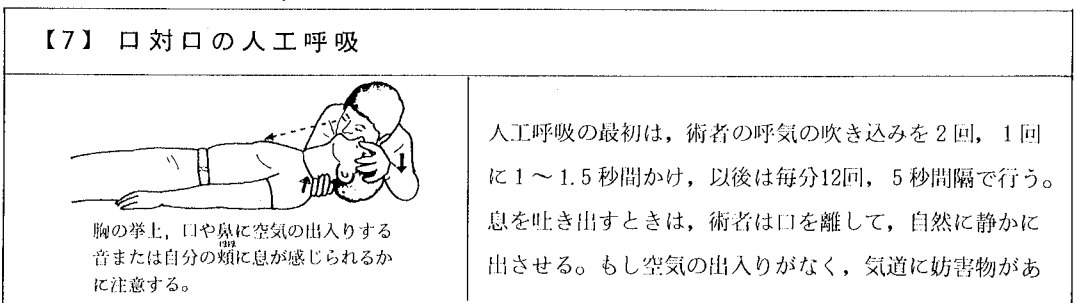 【7】 口対口の人工呼吸
胸の挙上，口や鼻に空気の出入りする
音または自分の頬に息が感じられるか
に注意する。
人工呼吸の最初は，術者の呼気の吹き込みを2回，1回
に1～1.5秒間かけ，以後は毎分12回，5秒間隔で行う。
息を吐き出すときは，術者は口を離して，自然に静かに
出させる。もし空気の出入りがなく，気道に妨害物があ